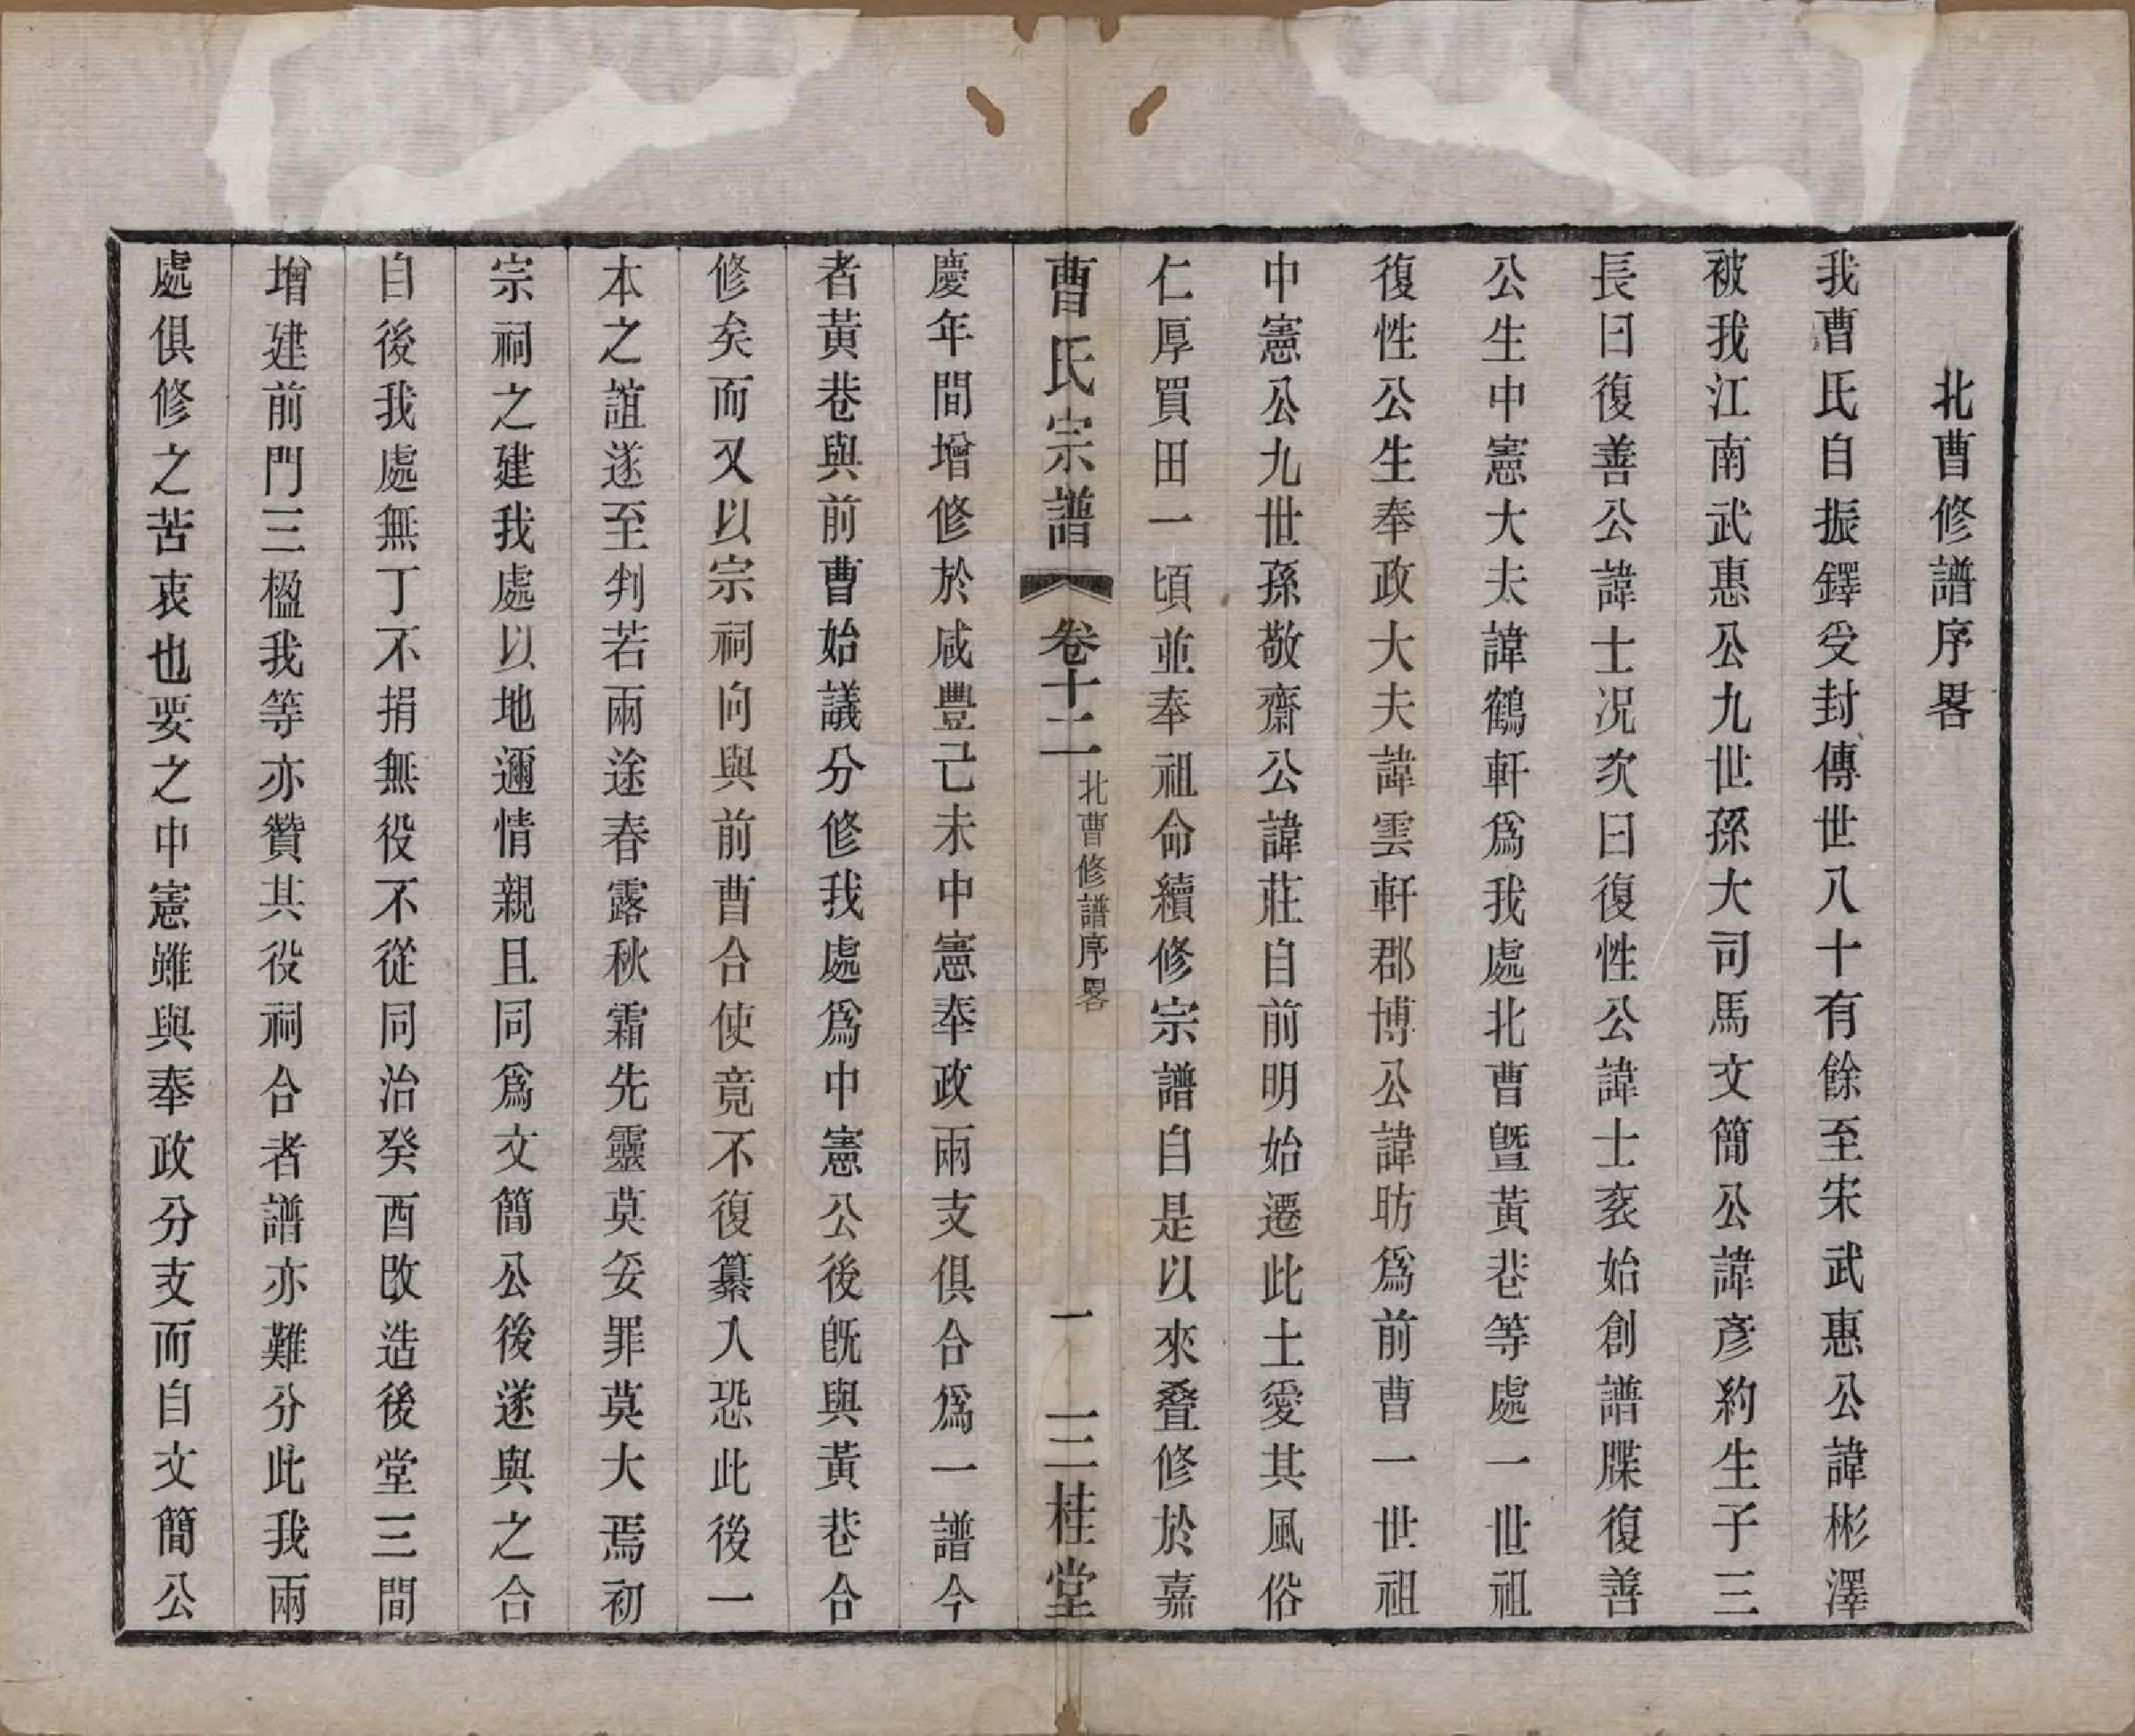 北曹修譜序畧
我曹氏自振鐸受封傳世八十有餘至宋武惠公諱彬澤
被我江南武惠公九世孫大司馬文簡公諱彥約生子三
長曰復善公諱士况次曰復性公諱士衮始創譜牒復善
公生中憲大夫諱鶴軒爲我處北曹曁黃巷等處一世祖
復性公生奉政大夫諱雲軒郡博公諱昉爲前曹一世祖
中憲公九世孫敬齋公諱莊自前明始遷此土愛其風俗
仁厚買田一頃並奉祖命續修宗譜自是以來叠修於嘉
曹氏宗譜 卷十二 北曹修譜序畧 一 三桂堂
慶年間增修於咸豐己未中憲奉政兩支俱合爲一譜今
者黃巷與前曹始議分修我處爲中憲公後旣與黃巷合
修矣而又以宗祠向與前曹合使竟不復纂入恐此後一
本之誼遂至判若兩途春露秋霜先靈莫妥罪莫大焉初
宗祠之建我處以地邇情親且同爲文簡公後遂與之合
自後我處無丁不捐無役不從同治癸酉改造後堂三間
增建前門三楹我等亦贊其役祠合者譜亦難分此我兩
處俱修之苦衷也要之中憲雖與奉政分支而自文簡公